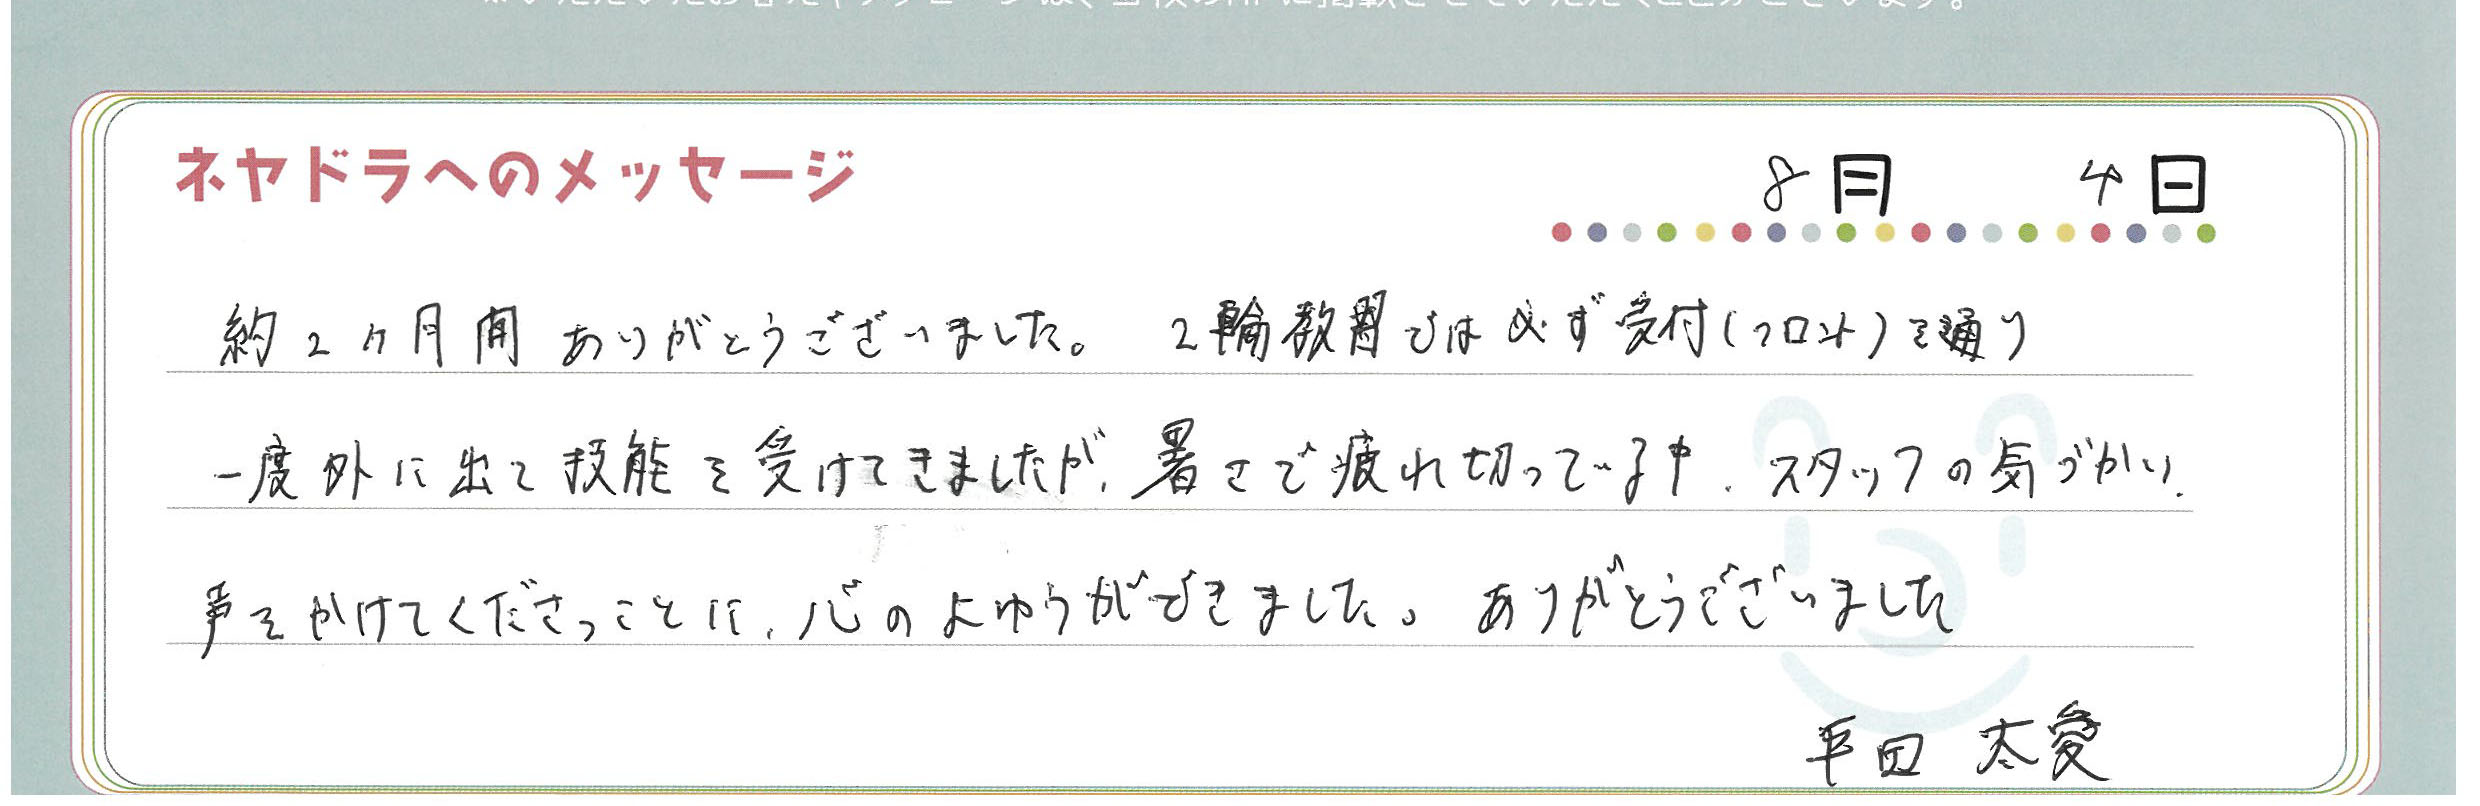 ネヤドラへのメッセージ
8月 4日
約2ヶ月間ありがとうございました。 2輪教習では必ず受付(フロント)を通り
一度外に出て技能を受けてきましたが、暑さで疲れ切っている中、スタッフの気づかい、
声をかけてくださっことに、心のよゆうができました。ありがとうございました
平田 太愛